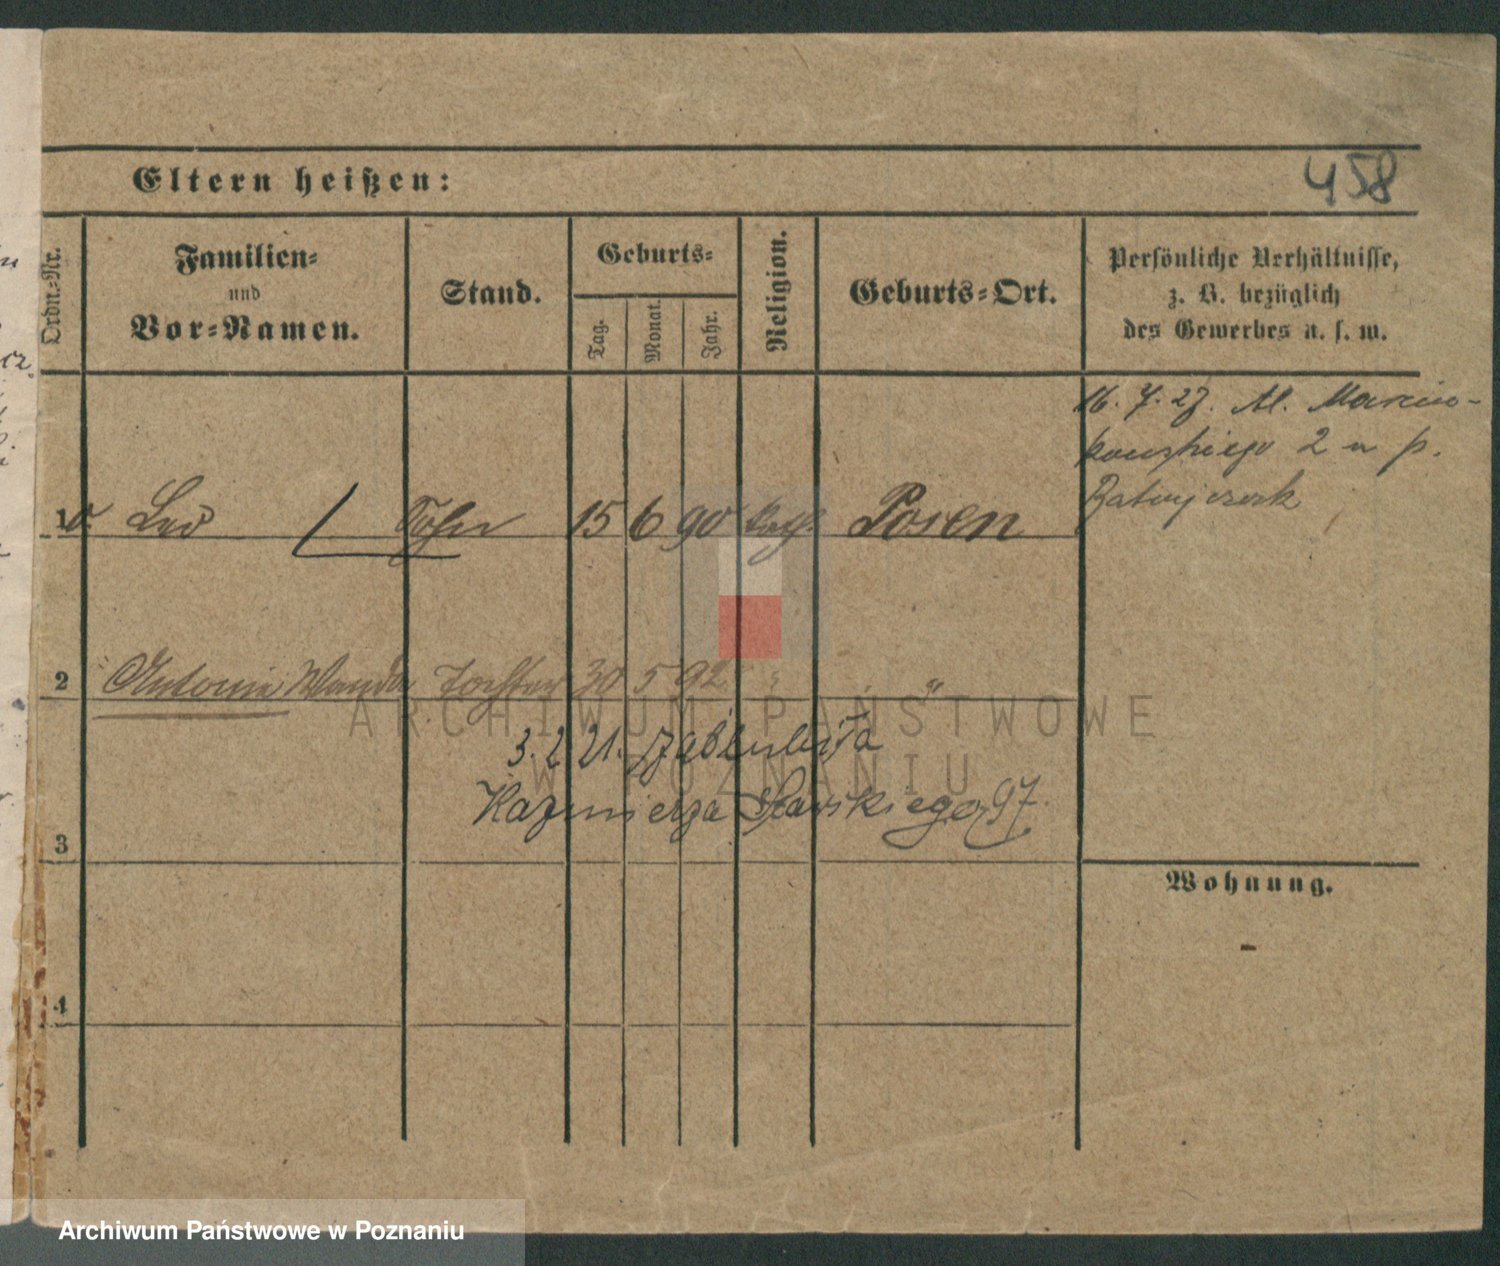 Eltern heißen:
458
Ordn.-Nr.
Familien-
und
Vor-Namen.
Stand.
Geburts-
Tag.
Monat.
Jahr.
Religion.
Geburts-Ort.
Persönliche Verhältnisse,
z. B. bezüglich
des Gewerbes u. s. w.
16. 7. 27. Al. Marcin-
kowskiego 2 u p.
Ratajczak
1 Leo Sohn 15 6 90 kath. Posen
2 Antonie Wanda Tochter 30 5 92 " "
3. 2 21.
Kazimierza 97.
3
Wohnung.
-
4
ARCHIWUM PAŃSTWOWE
W POZNANIU
Archiwum Państwowe w Poznaniu